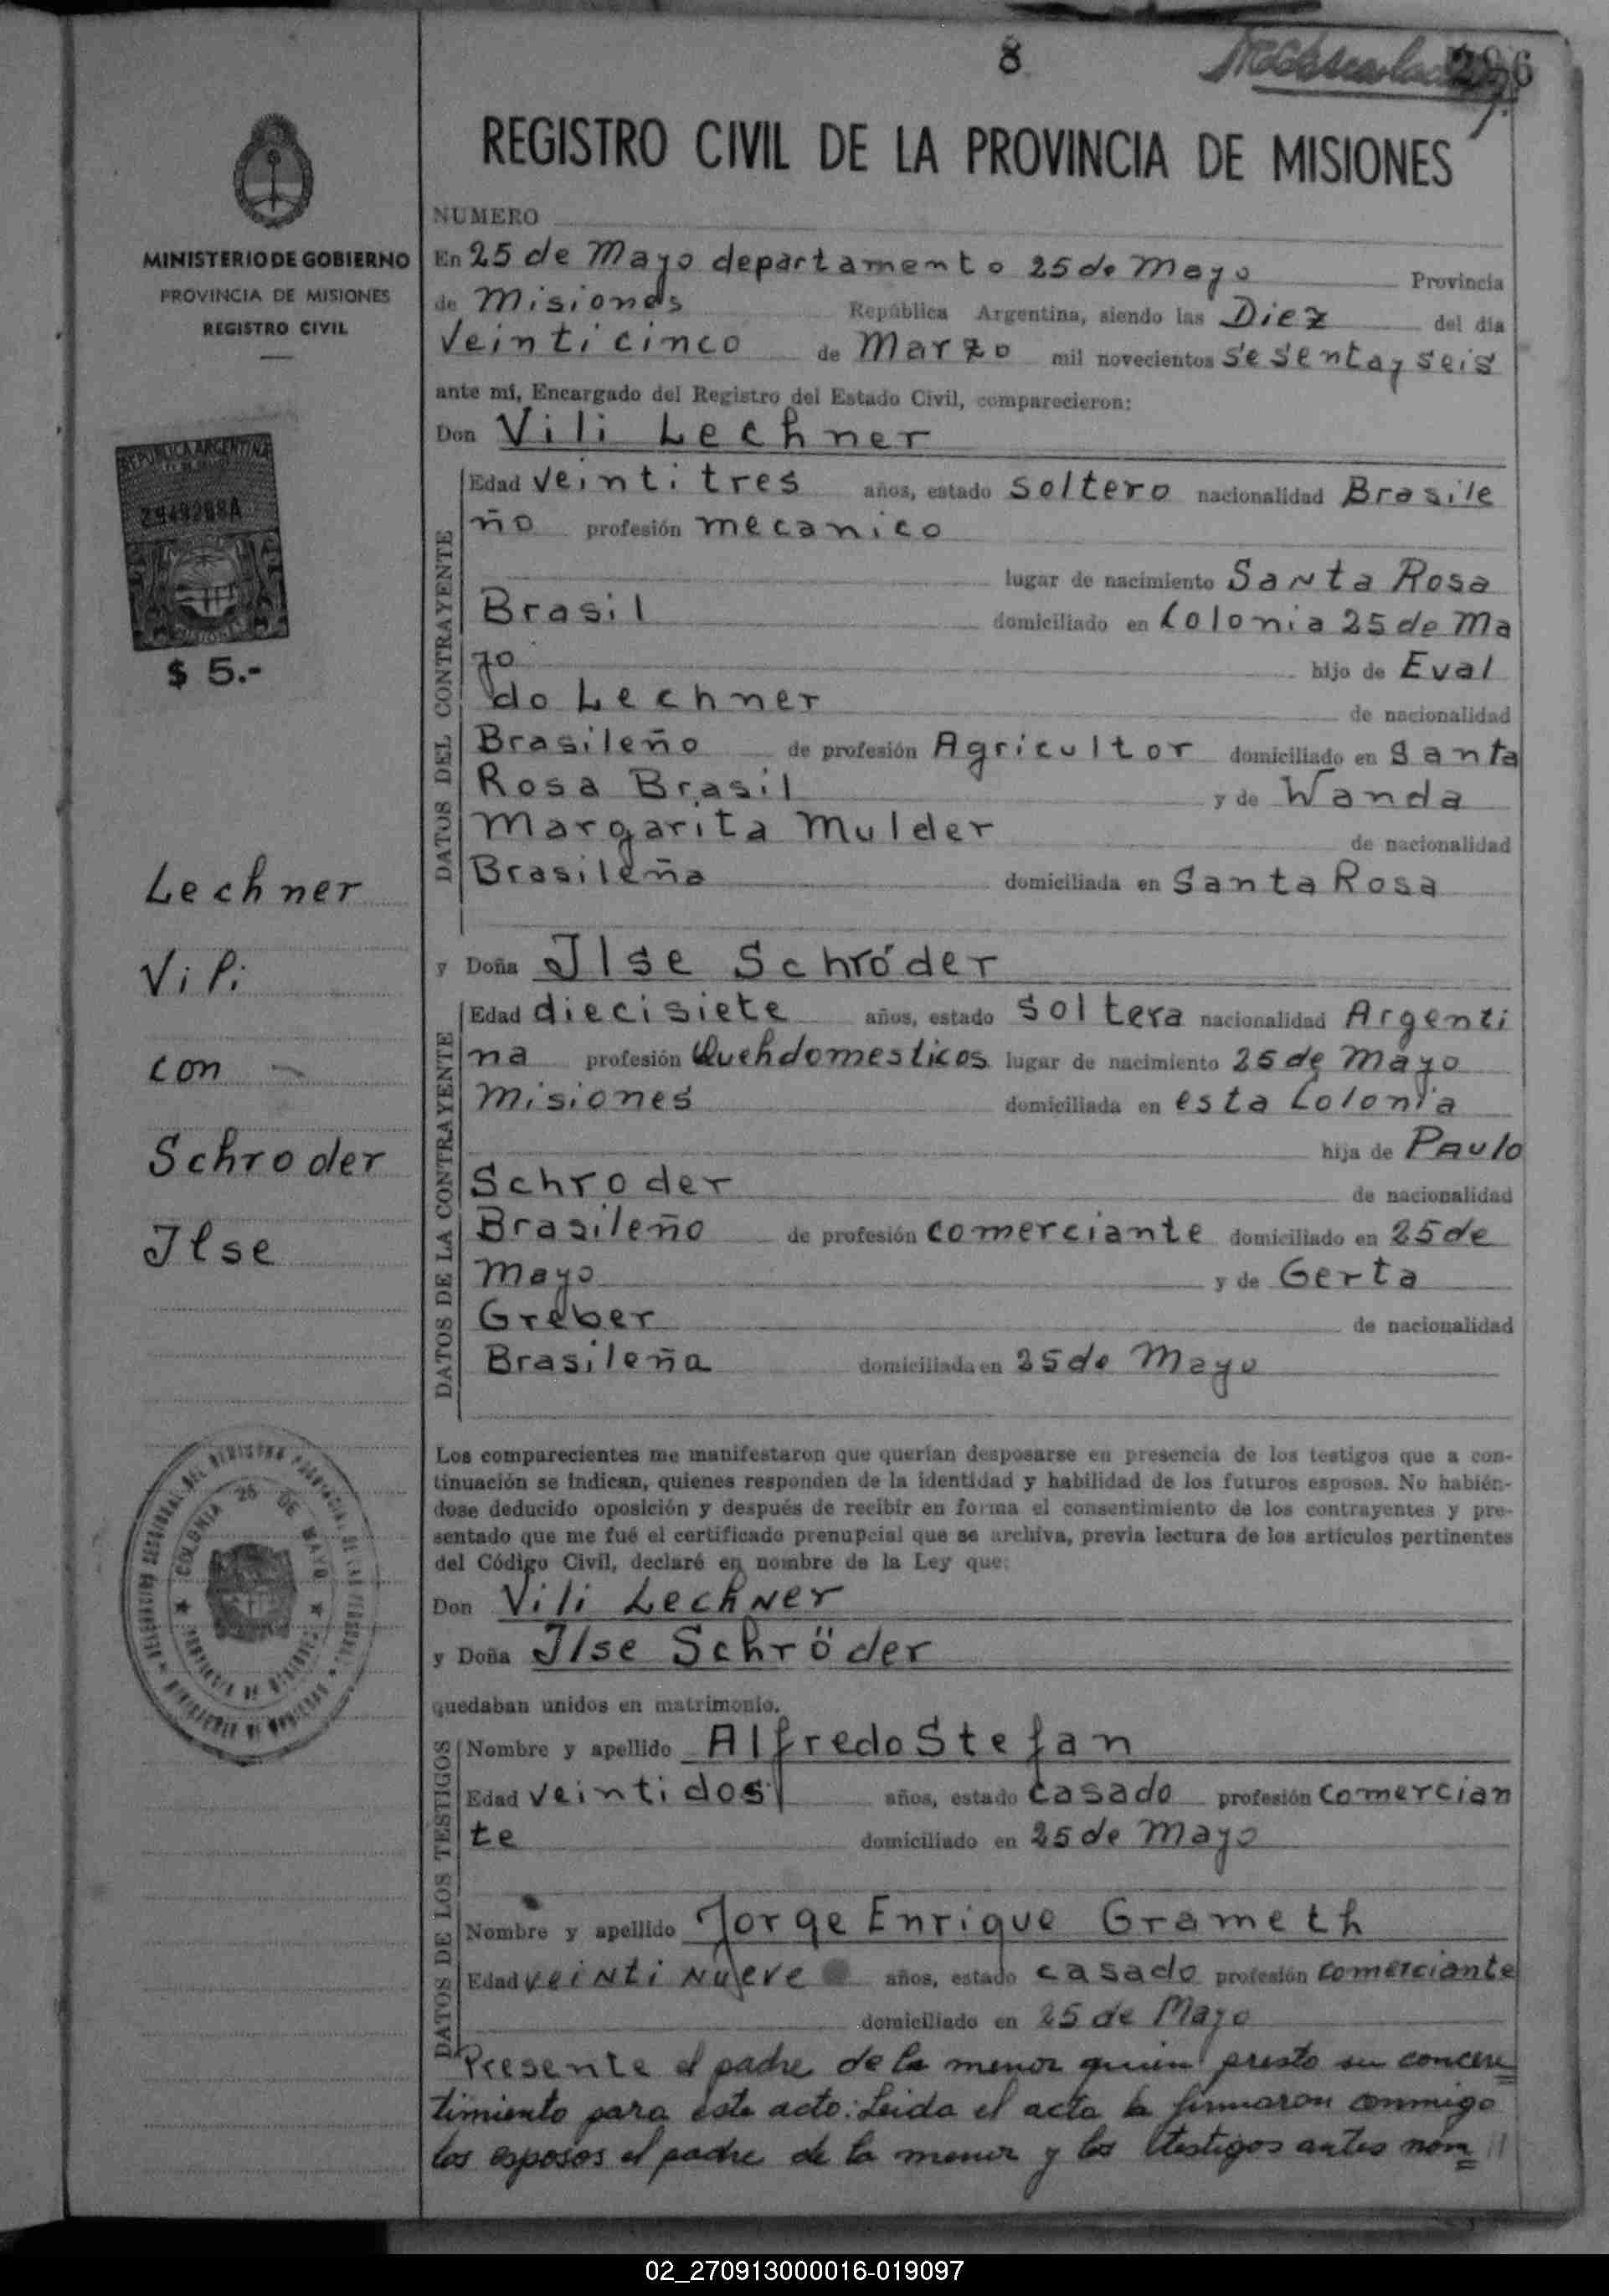 8
286
REGISTRO CIVIL DE LA PROVINCIA DE MISIONES
MINISTERIO DE GOBIERNO
PROVINCIA DE MISIONES
REGISTRO CIVIL
REPUBLICA ARGENTINA
2949288A
$ 5.-
Lechner
Vili
con
Schroder
Ilse
COLONIA 25 DE MAYO
NUMERO
En 25 de Mayo departamento 25 de Mayo Provincia
de Misiones República Argentina, siendo las Diez del día
Veinticinco de Marzo mil novecientos Sesenta y seis
ante mí, Encargado del Registro del Estado Civil, comparecieron:
Don Vili Lechner
DATOS DEL CONTRAYENTE
Edad Veintitres años, estado Soltero nacionalidad Brasile
ño profesión mecanico
lugar de nacimiento Santa Rosa
Brasil domiciliado en Colonia 25 de Ma
yo hijo de Eval
do Lechner de nacionalidad
Brasileño de profesión Agricultor domiciliado en Santa
Rosa Brasil y de Wanda
Margarita Mulder de nacionalidad
Brasileña domiciliada en Santa Rosa
y Doña Ilse Schróder
DATOS DE LA CONTRAYENTE
Edad diecisiete años, estado Soltera nacionalidad Argenti
na profesión Quehdomesticos lugar de nacimiento 25 de Mayo
Misiones domiciliada en esta Colonia
hija de Paulo
Schroder de nacionalidad
Brasileño de profesión comerciante domiciliado en 25 de
Mayo y de Gerta
Greber de nacionalidad
Brasileña domiciliada en 25 de Mayo
Los comparecientes me manifestaron que querían desposarse en presencia de los testigos que a con-
tinuación se indican, quienes responden de la identidad y habilidad de los futuros esposos. No habién-
dose deducido oposición y después de recibir en forma el consentimiento de los contrayentes y pre-
sentado que me fué el certificado prenupcial que se archiva, previa lectura de los artículos pertinentes
del Código Civil, declaré en nombre de la Ley que:
Don Vili Lechner
y Doña Ilse Schröder
quedaban unidos en matrimonio.
DATOS DE LOS TESTIGOS
Nombre y apellido Alfredo Stefan
Edad Veintidos años, estado Casado profesión Comercian
te domiciliado en 25 de Mayo
Nombre y apellido Jorge Enrique Grameth
Edad veintinueve años, estado casado profesión comerciante
domiciliado en 25 de Mayo
Presente el padre de la menor quien presto su concen
timiento para este acto: Leida el acta la firmaron conmigo
los esposos el padre de la menor y los testigos antes nom //
02_270913000016-019097